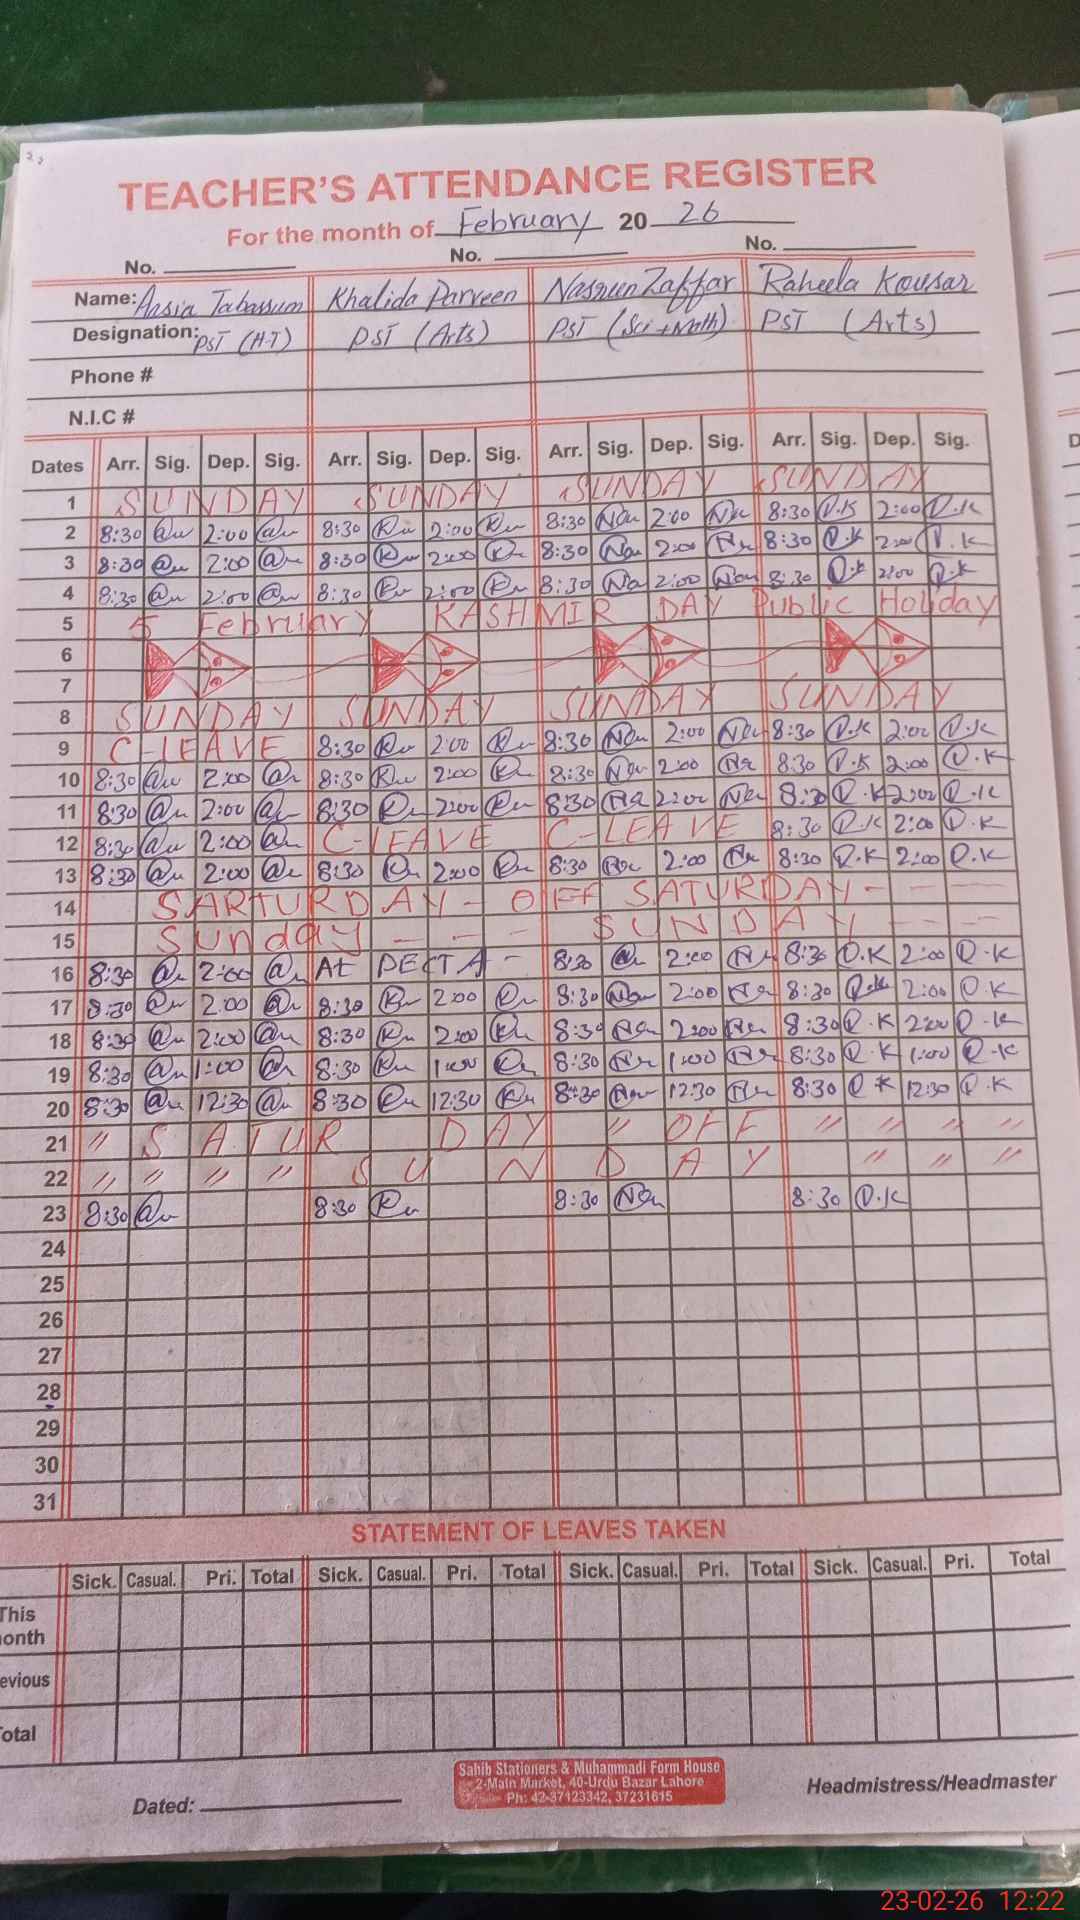 TEACHER'S ATTENDANCE REGISTER
For the month of February 20 26
No. No. No.
Name: Aasia Tabassum Khalida Parveen Nasreen Zaffar Raheela Kousar
Designation: PST (H.T) PST (Arts) PST (Sci + Math) PST (Arts)
Phone #
N.I.C #
Dates Arr. Sig. Dep. Sig. Arr. Sig. Dep. Sig. Arr. Sig. Dep. Sig. Arr. Sig. Dep. Sig.
1 SUNDAY SUNDAY SUNDAY SUNDAY
2 8:30 2:00 8:30 2:00 8:30 2:00 8:30 R.K 2:00 R.K
3 8:30 2:00 8:30 2:00 8:30 2:00 8:30 R.K 2:00 R.K
4 8:30 2:00 8:30 2:00 8:30 2:00 8:30 R.K 2:00 R.K
5 5 February KASHMIR DAY Public Holiday
6
7
8 SUNDAY SUNDAY SUNDAY SUNDAY
9 C-LEAVE 8:30 2:00 8:30 2:00 8:30 R.K 2:00 R.K
10 8:30 2:00 8:30 2:00 8:30 2:00 8:30 R.K 2:00 R.K
11 8:30 2:00 8:30 2:00 8:30 2:00 8:30 R.K 2:00 R.K
12 8:30 2:00 C-LEAVE C-LEAVE 8:30 R.K 2:00 R.K
13 8:30 2:00 8:30 2:00 8:30 2:00 8:30 R.K 2:00 R.K
14 SARTURDAY - OFF SATURDAY - - - -
15 Sunday - - - SUNDAY - - -
16 8:30 2:00 At PECTA - 8:30 2:00 8:30 R.K 2:00 R.K
17 8:30 2:00 8:30 2:00 8:30 2:00 8:30 R.K 2:00 R.K
18 8:30 2:00 8:30 2:00 8:30 2:00 8:30 R.K 2:00 R.K
19 8:30 1:00 8:30 1:00 8:30 1:00 8:30 R.K 1:00 R.K
20 8:30 12:30 8:30 12:30 8:30 12:30 8:30 R.K 12:30 R.K
21 " SATUR DAY " OFF " " " "
22 " " " " SUNDAY " " "
23 8:30 8:30 8:30 8:30 R.K
24
25
26
27
28
29
30
31
STATEMENT OF LEAVES TAKEN
Sick. Casual. Pri. Total Sick. Casual. Pri. Total Sick. Casual. Pri. Total Sick. Casual. Pri. Total
This
onth
evious
otal
Sahib Stationers & Muhammadi Form House
2-Main Market, 40-Urdu Bazar Lahore
Ph: 42-37123342, 37231615
Dated: Headmistress/Headmaster
23-02-26 12:22